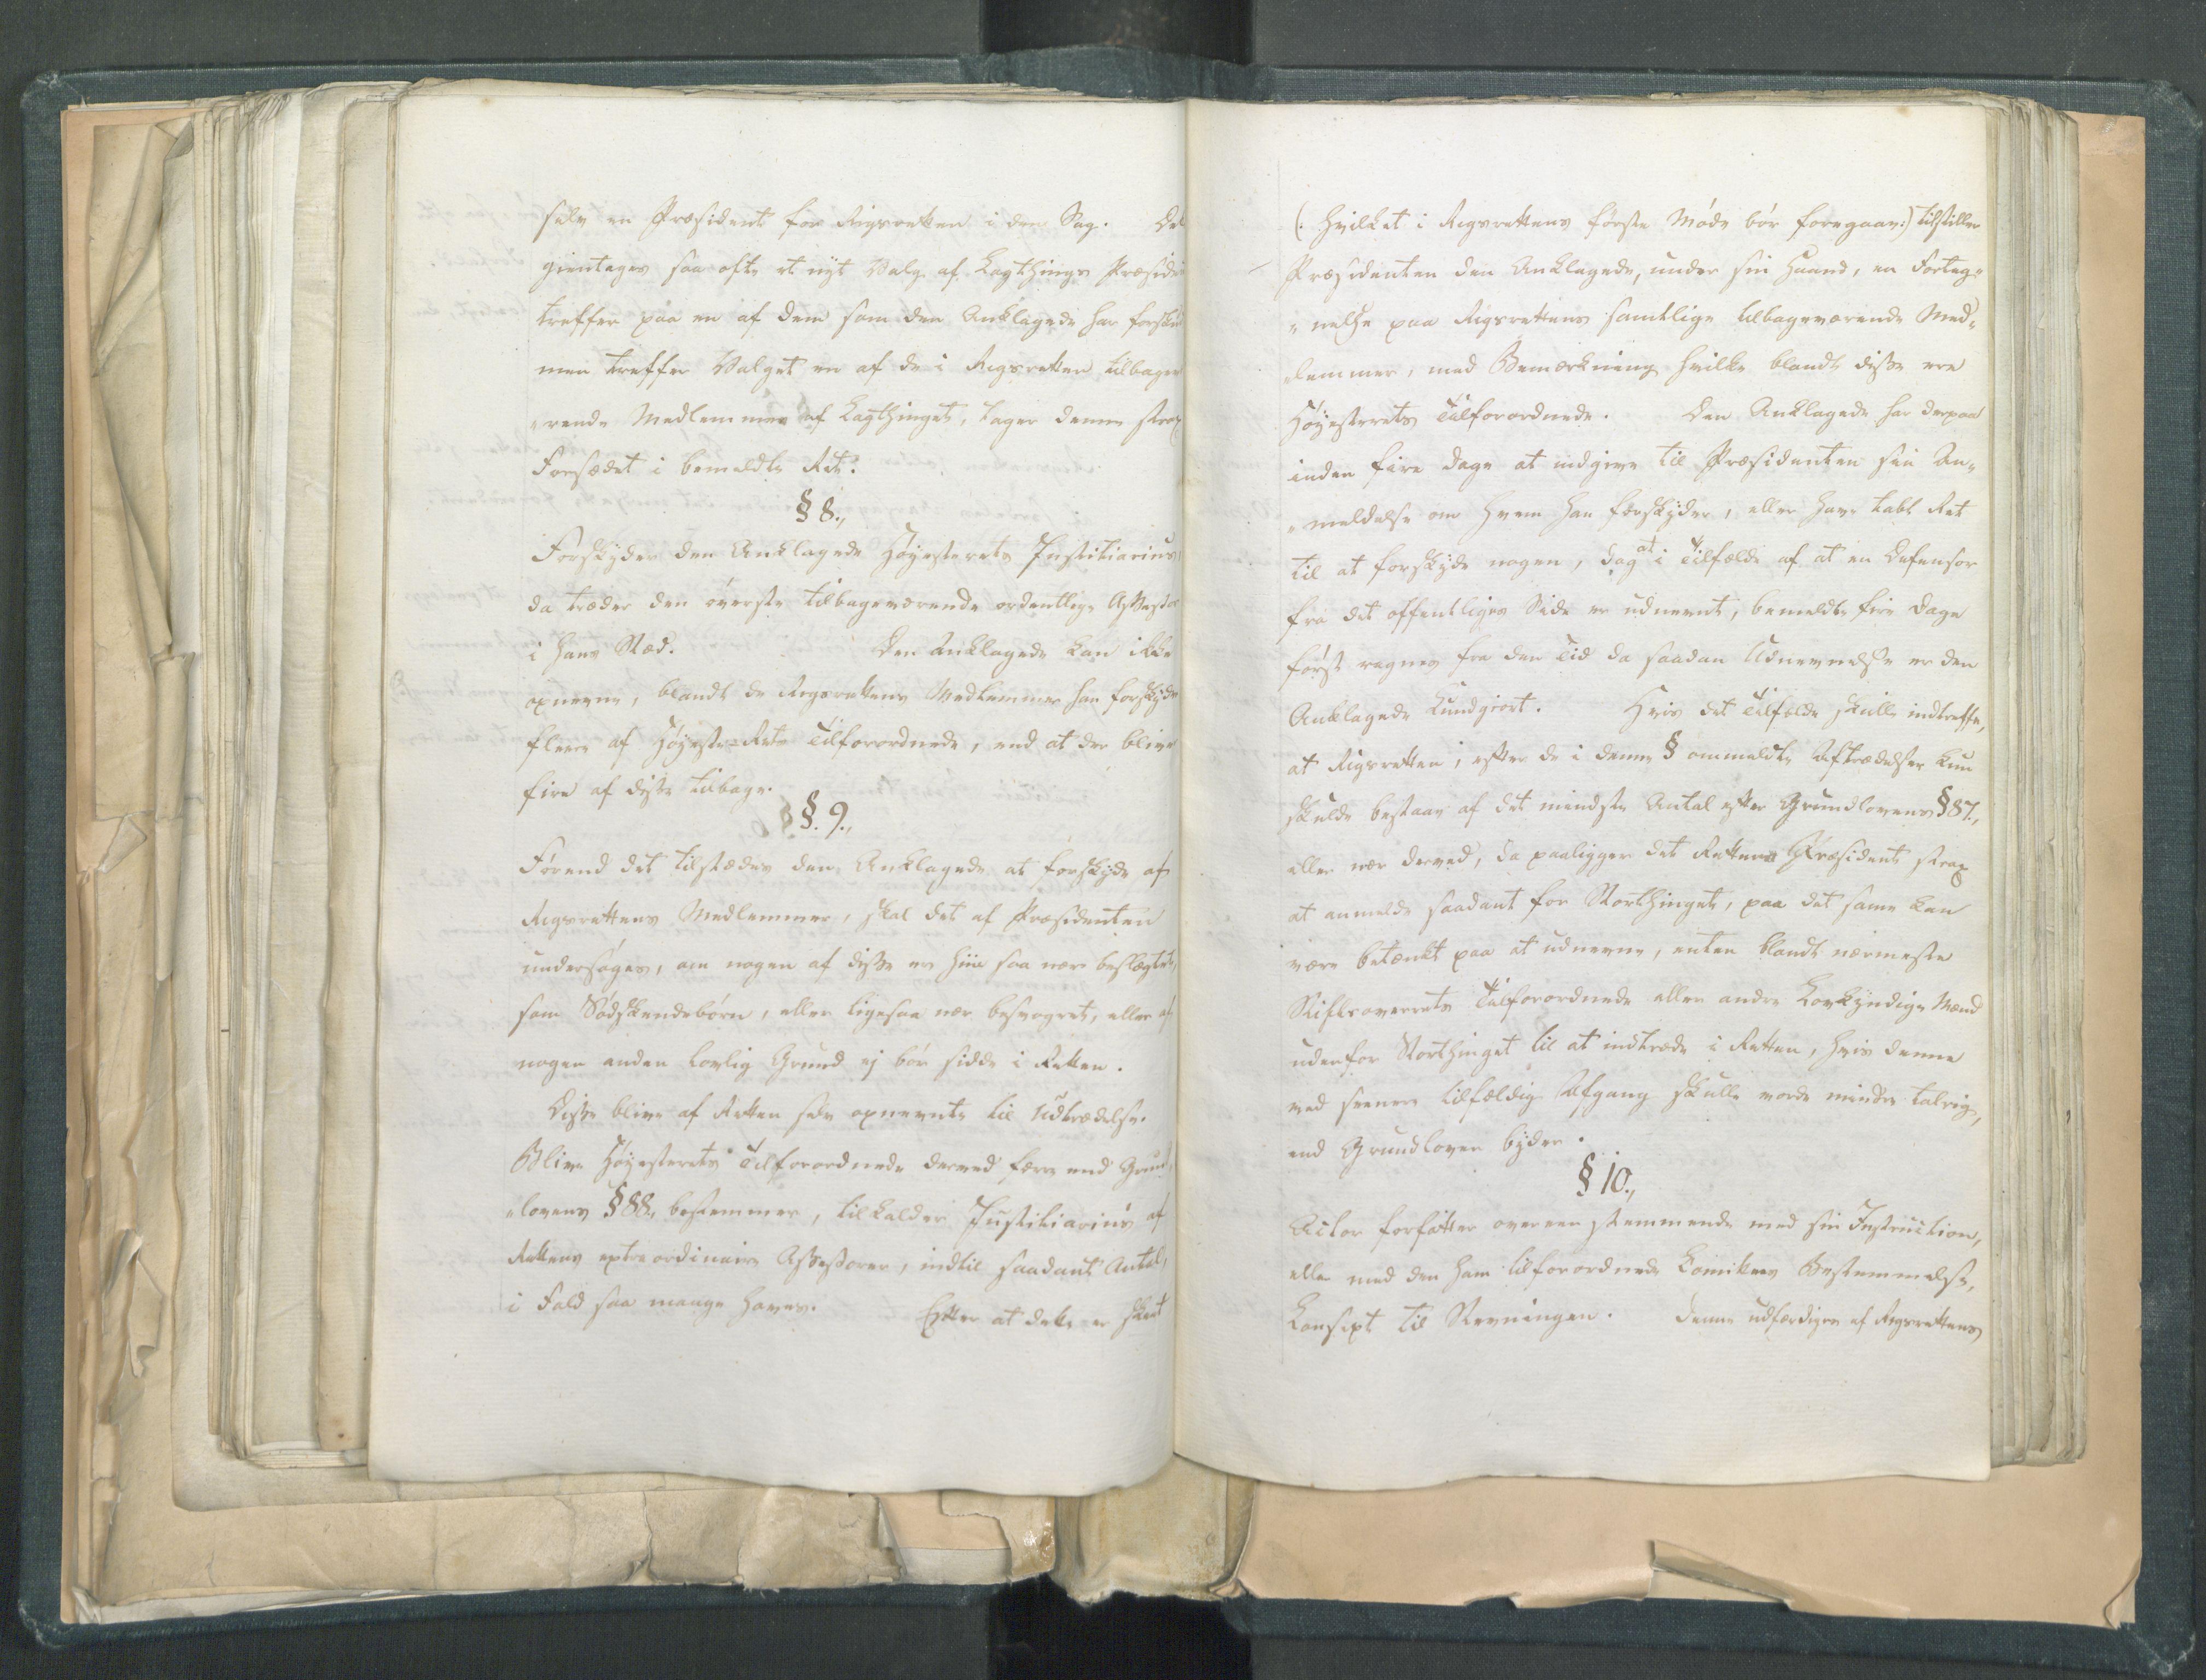 selv en Præsident for Rigsretten i den Sag. Det
gientages saa ofte et nyt Valg af Lagthings Præside
treffer paa en af dem som den Anklagede har forskud
men treffer Valget en af de i Rigsretten tilbagev
„rende Medlemmer af Lagthinget, tager denne strax
Forsædet i bemeldte Ret.
§ 8.,
Forskyder den Anklagede Høyesterets Justitiarius,
da træder den øverste tilbageværende ordentlige Assessor
i hans Sted. Den Anklagede kan ikke
opnevne, blandt de Rigsrettens Medlemmer han forskyder
fleere af Høyeste-Rets Tilforordnede, end at der blive
fire af disse tilbage.
§. 9.,
Førend det tilstædes den Anklagede at forskyde af
Rigsrettens Medlemmer, skal det af Præsidenten
undersøges, om nogen af disse er hiin saa nær beslægtet,
som Södskendebörn, eller ligesaa nær besvogret, eller af
nogen anden lovlig Grund ej bör sidde i Retten.
Disse blive af Retten selv opnevnte til Udtrædelse.
Blive Høyesterets Tilforordnede derved færre end Grund„
„lovens § 88, bestemmer, tilkalder Justitiarius af
Rettens extraordinaire Assessorer, indtil saadant Antal,
i Fald saa mange haves. Efter at dette er skeet
(: hvilket i Rigsrettens første Møde bör foregaae:) tilstiller
Præsidenten den Anklagede, under sin Haand, en Forteg„
„nelse paa Rigsrettens samtlige tilbageværende Med„
„lemmer, med Bemærkning hvilke blandt disse ere
Høyesterets Tilforordnede. Den Anklagede har derpaa
inden fire Dage at indgive til Præsidenten sin An„
„meldelse om hvem han forskyder, eller have tabt Ret
til at forskyde nogen, dog at i Tilfælde af at en Defensor
fra det offentliges Side er udnevnt, bemeldte fire Dage
først regnes fra den Tid da saadan Udnevnelse er den
Anklagede kundgiort. Hvis det Tilfælde skulle indtreffe,
at Rigsretten, efter de i denne § ommeldte Aftrædelser kun
skulde bestaae af det mindste Antal efter Grundlovens § 87.,
eller nær derved, da paaligger det Rettens Præsident strax
at anmelde saadant for Storthinget, paa det samme kan
være betænkt paa at udnevne, enten blandt nærmeste
Stiftsoverrets Tilforordnede eller andre Lovkyndige Mænd
udenfor Storthinget til at indtræde i Retten, hvis denne
ved seenere tilfældig Afgang skulle vorde mindre talrig,
end Grundloven byder.
§ 10.,
Actor forfatter overeenstemmende med sin Instruction,
eller med den ham tilforordnede Comitees Bestemmelse,
Concept til Stevningen. Denne udfærdiges af Rigsrettens